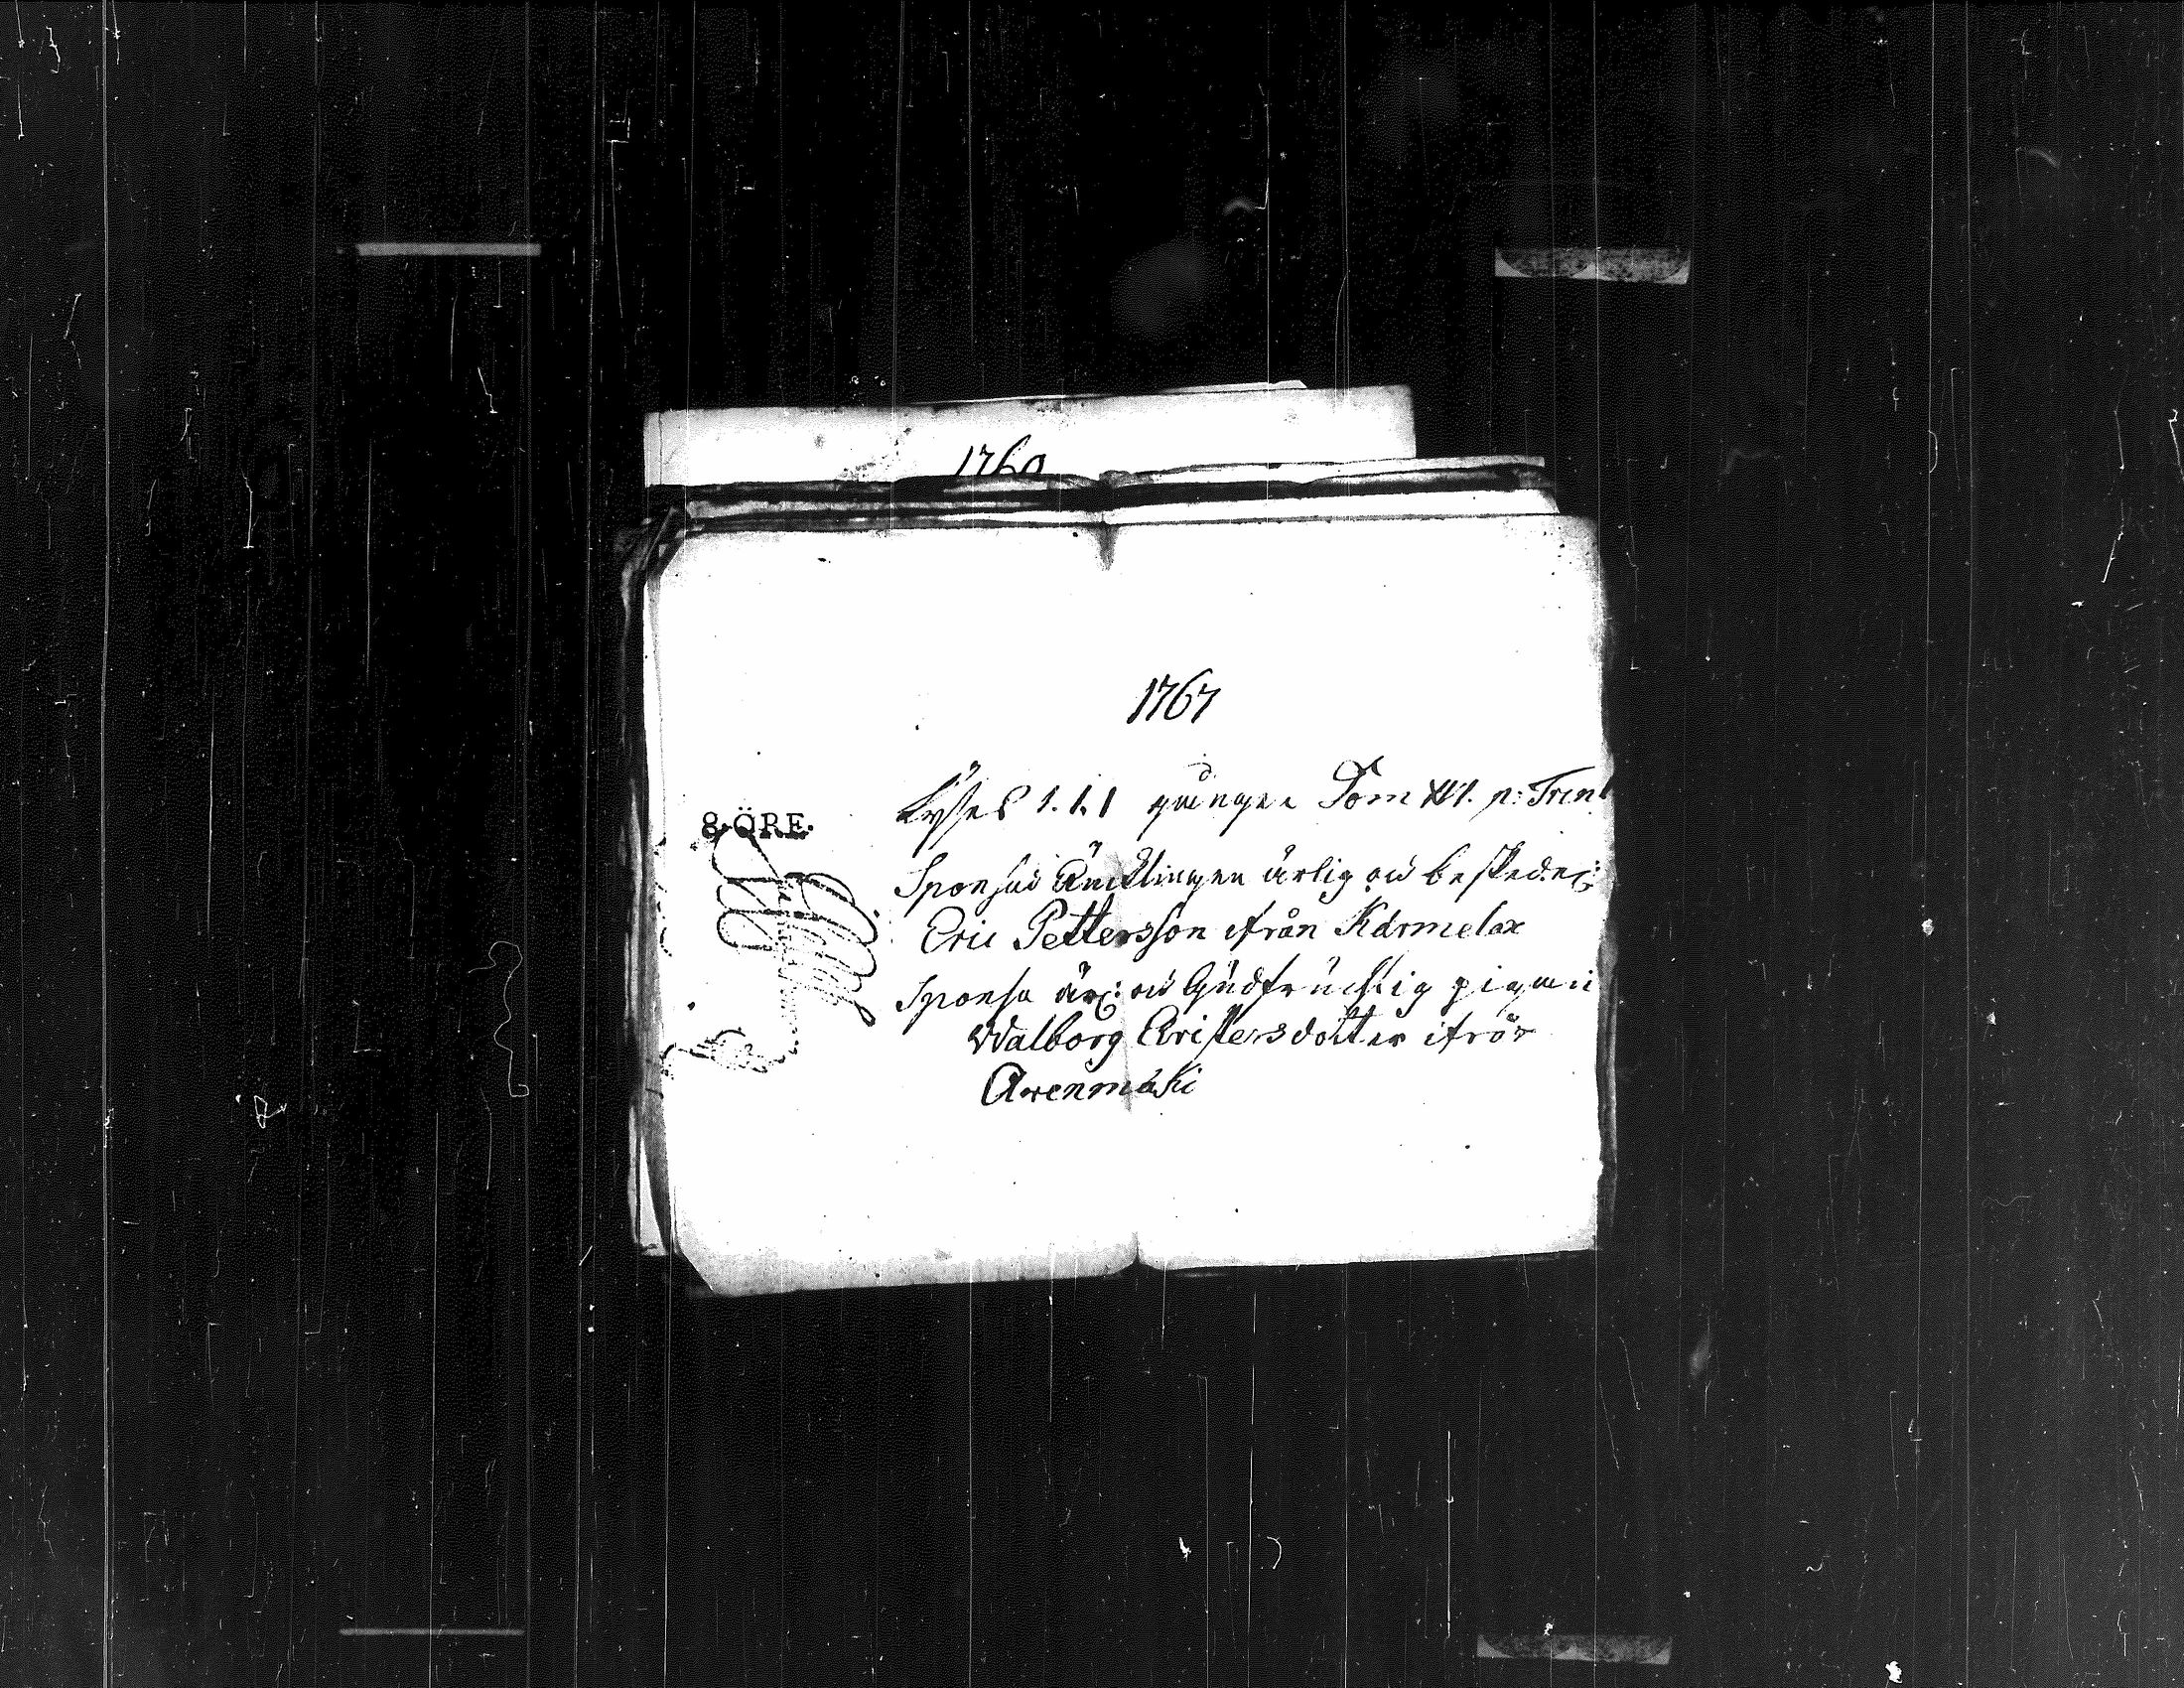 1760
1767
8·ÖRE·
Lyses 1. 1. 1 gången Dom XVI. p: Trin
Sponsus Änklingen ärlig och beskedel:
Eric Pettersson ifrån Kärmelax
Sponsa är: och Gudfrucktig pigan
Walborg Christersdotter ifrån
Arvenmäki